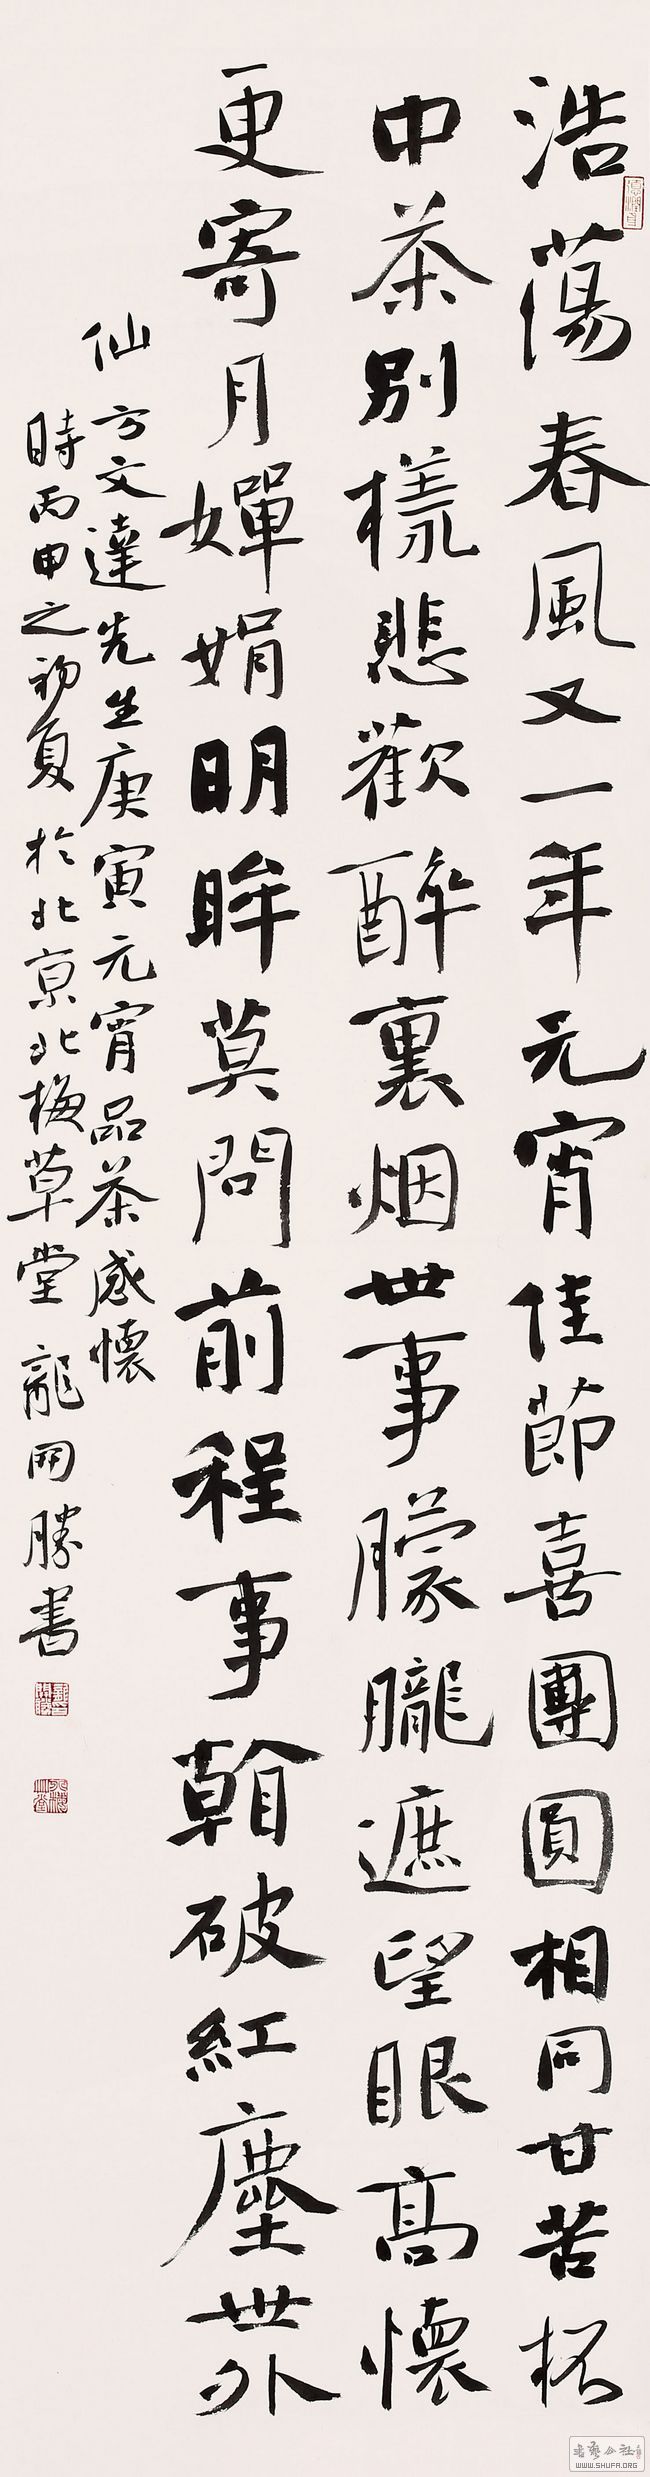 浩蕩春風又一年元宵佳節喜團圓相同甘苦杯
中茶別樣悲歡醉裏烟世事朦朧遮望眼高懷
更寄月嬋娟明眸莫問前程事翰破紅塵世外
仙 方文達先生庚寅元宵品茶感懷
時丙申之初夏於北京北梅草堂龍開勝書
書藝公社
WWW.SHUFA.ORG